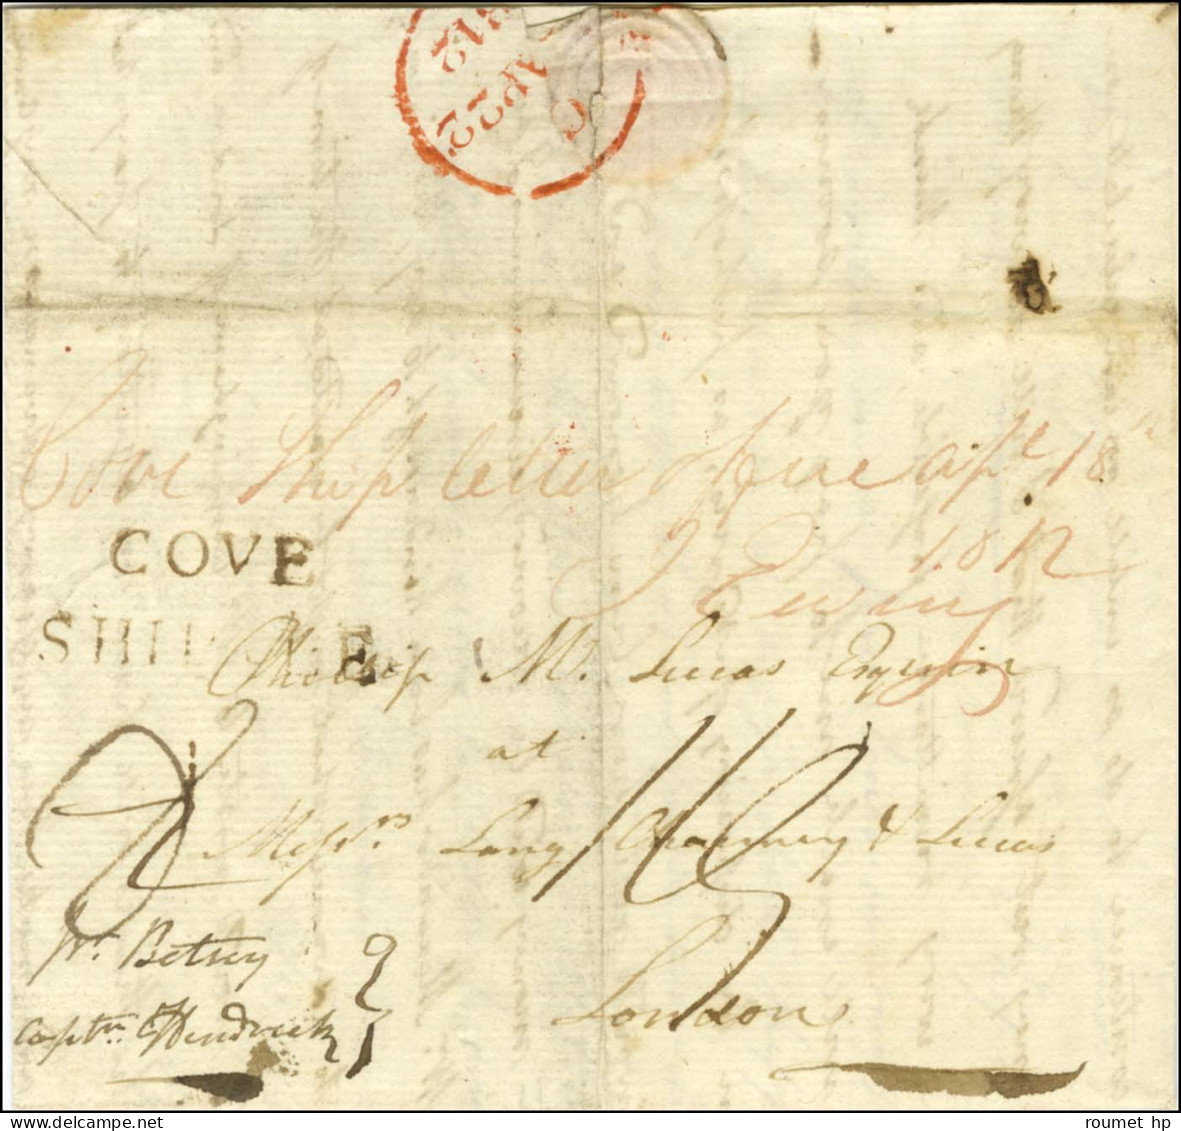 C
AP 22
812
Cove Ship letter office apl 18th
1812
J Ewing
COVE
SHIP LE
Phillip M. Lucas Esquire
at
Messrs Lang Chauncy & Lucas
London
Pr. Betsey
Captn. Hendrick
roumet hp